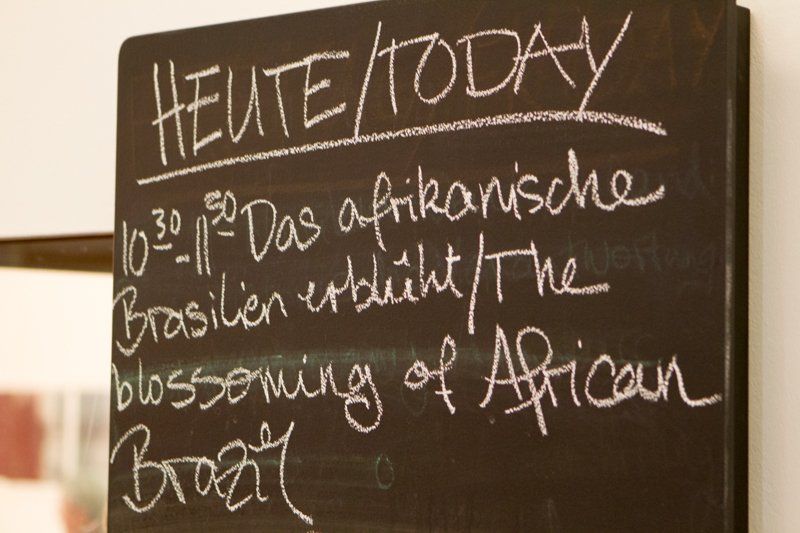 HEUTE/TODAY
10 30 - 11 50 Das afrikanische
Brasilien erblüht/The
blossoming of African
Brazil